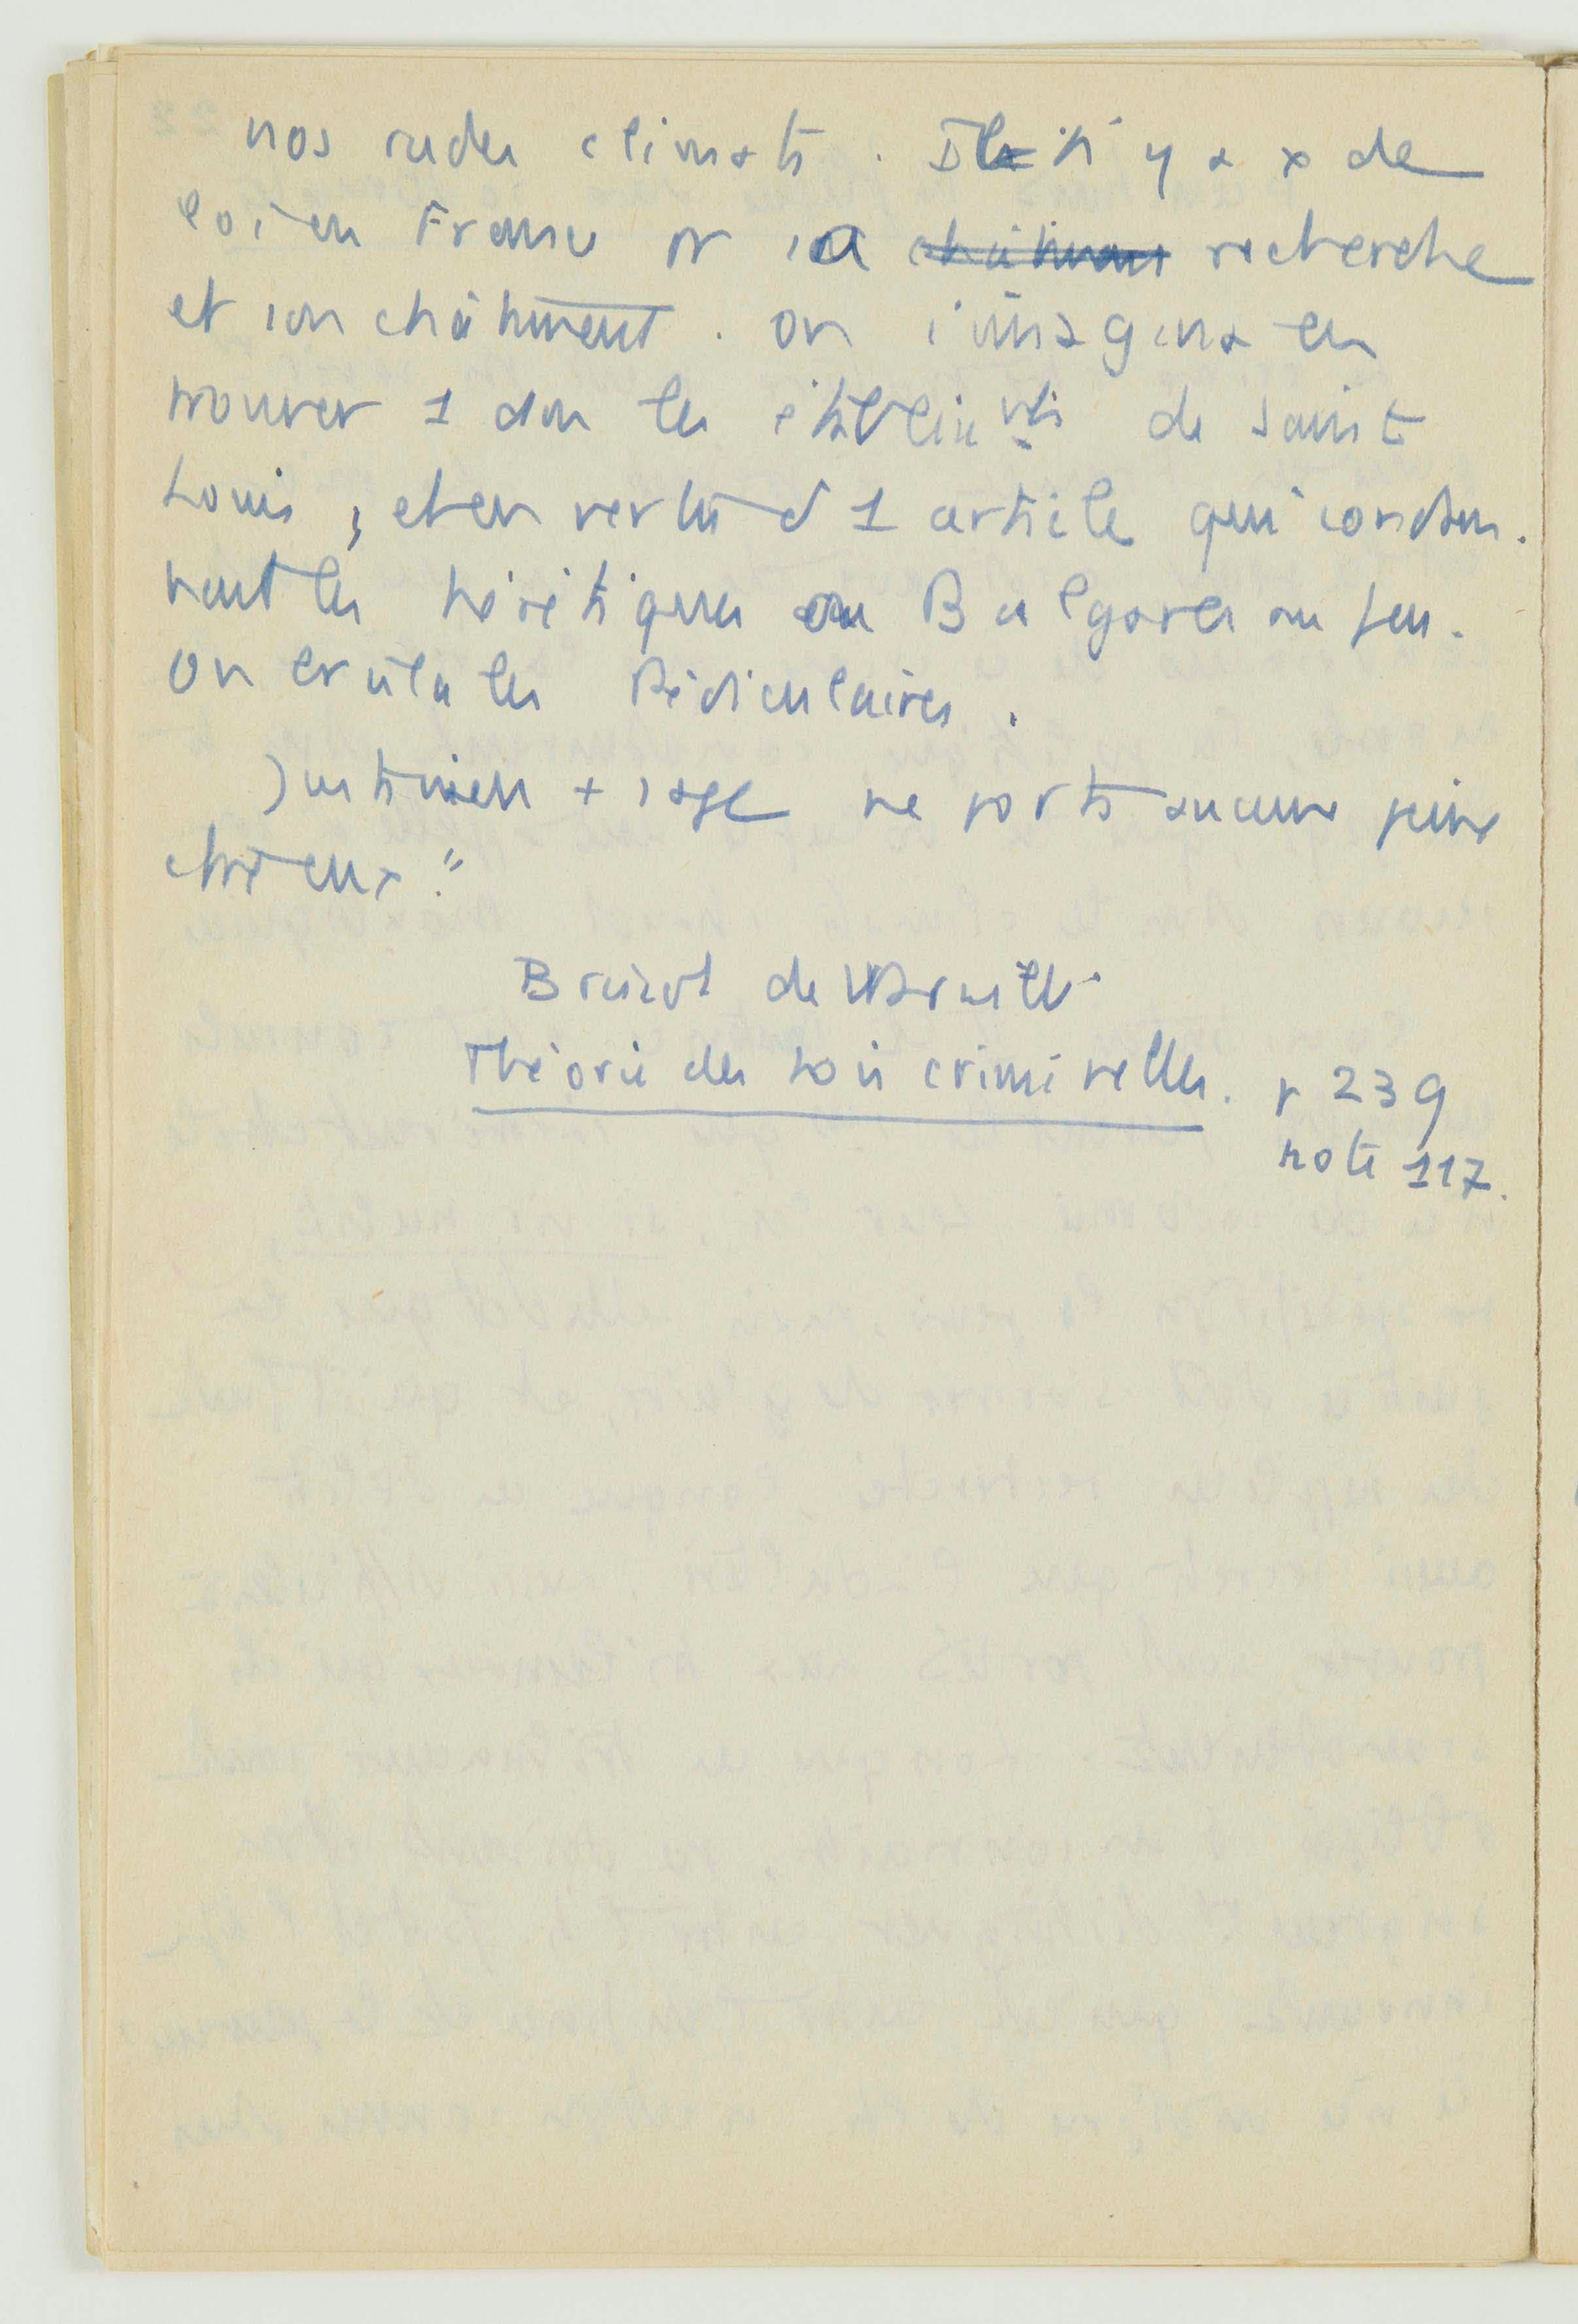 nos rudes climats. Il n'y a x de
loi en France pr sa châtiment recherche
et son châtiment. on imagina en
trouver 1 dans les établissmts de Saint
Louis, et en vertu d'1 article qui condam-
nait les hérétiques ou Bulgares au feu.
On brûla les Pédiculaires.
Justinien + sage ne porta aucune peine
chr eux."
Brissot de Warville
Théorie des Lois criminelles. p 239
note 117.